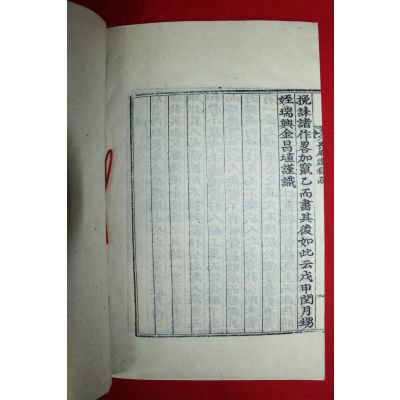 挽誄諸作畧加竄乙而書其後如此云戊申閏月甥
姪瑞興金昌埴謹識